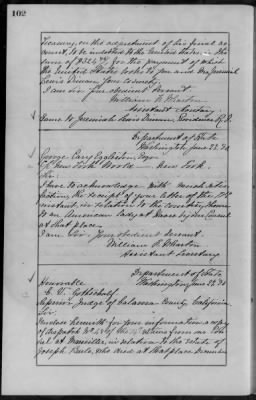 102
Treasury, on the adjustment of his final ac-
count, to be indebted to the United States, in the
sum of for the payment of which
the United States looks to you and
Lewis Duncan, your
I am Sir your obedient servant
William F. Wharton
Assistant Secretary.
Same to Jeremiah Lewis Duncan, Providence R.I.
Department of State
Washington June 23, '90
George Cary Eggleston, Esqre
Of New York World New York.
Sir:
I have to acknowledge with
the receipt of your letter of the
instant, in relation to the courtesy shown
to an American lady at by our Consul
at that place.
I am Sir, Your obedient servant.
William F. Wharton
Assistant Secretary
Department of State
Washington June 23, '90
Honorable
C. V. Gottschalk
Superior Judge of Calaveras County California
Sir:
I enclose herewith for your information a copy
of dispatch No. of the from our Con-
sul at Marseilles, in relation to the estate of
Joseph who died at that place